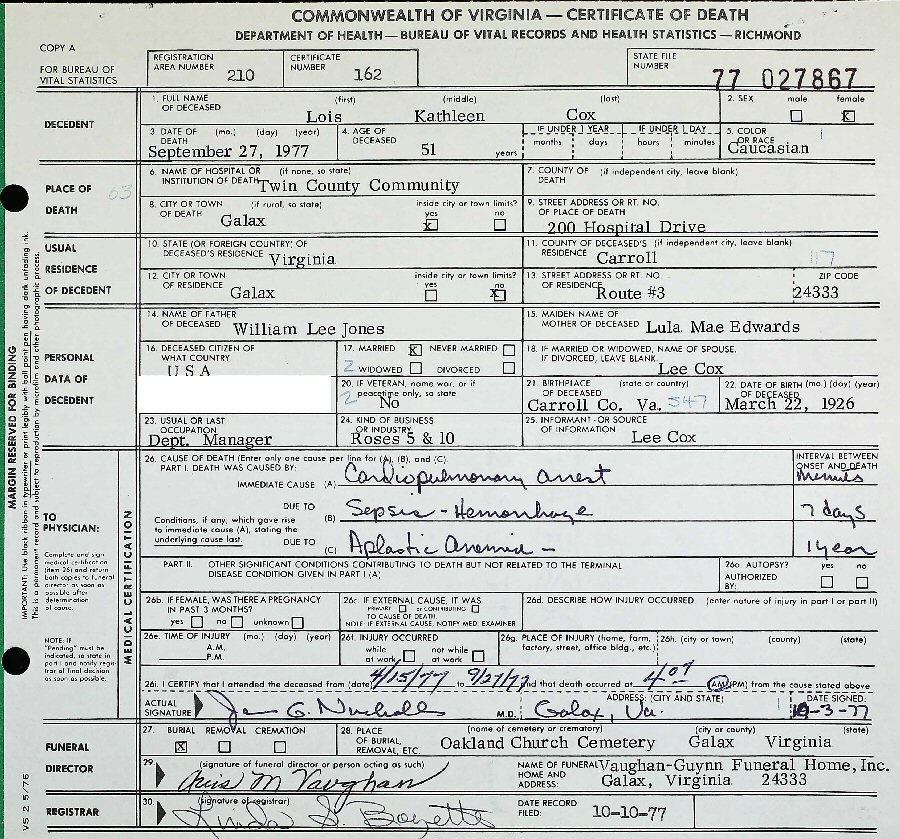 COMMONWEALTH OF VIRGINIA — CERTIFICATE OF DEATH
DEPARTMENT OF HEALTH — BUREAU OF VITAL RECORDS AND HEALTH STATISTICS — RICHMOND
COPY A
FOR BUREAU OF VITAL STATISTICS
REGISTRATION AREA NUMBER 210
CERTIFICATE NUMBER 162
STATE FILE NUMBER 77 027867
DECEDENT
1. FULL NAME OF DECEASED (first) (middle) (last)
Lois Kathleen Cox
2. SEX male female X
3. DATE OF DEATH (mo.) (day) (year)
September 27, 1977
4. AGE OF DECEASED 51 years
IF UNDER 1 YEAR months days
IF UNDER 1 DAY hours minutes
5. COLOR OR RACE
Caucasian
PLACE OF DEATH
63
6. NAME OF HOSPITAL OR INSTITUTION OF DEATH (if none, so state)
Twin County Community
7. COUNTY OF DEATH (if independent city, leave blank)
8. CITY OR TOWN OF DEATH (if rural, so state)
Galax
inside city or town limits? yes X no
9. STREET ADDRESS OR RT. NO. OF PLACE OF DEATH
200 Hospital Drive
USUAL RESIDENCE OF DECEDENT
10. STATE (OR FOREIGN COUNTRY) OF DECEASED'S RESIDENCE
Virginia
11. COUNTY OF DECEASED'S RESIDENCE (if independent city, leave blank)
Carroll 117
12. CITY OR TOWN OF RESIDENCE
Galax
inside city or town limits? yes no X
13. STREET ADDRESS OR RT. NO. OF RESIDENCE
Route #3
ZIP CODE 24333
PERSONAL DATA OF DECEDENT
14. NAME OF FATHER OF DECEASED
William Lee Jones
15. MAIDEN NAME OF MOTHER OF DECEASED
Lula Mae Edwards
16. DECEASED CITIZEN OF WHAT COUNTRY
USA
17. MARRIED X NEVER MARRIED
2 WIDOWED DIVORCED
18. IF MARRIED OR WIDOWED, NAME OF SPOUSE. IF DIVORCED, LEAVE BLANK.
Lee Cox
20. IF VETERAN, name war, or if peacetime only, so state
2 No
21. BIRTHPLACE OF DECEASED (state or country)
Carroll Co. Va. 547
22. DATE OF BIRTH OF DECEASED (mo.) (day) (year)
March 22, 1926
23. USUAL OR LAST OCCUPATION
Dept. Manager
24. KIND OF BUSINESS OR INDUSTRY
Roses 5 & 10
25. INFORMANT - OR SOURCE OF INFORMATION
Lee Cox
MARGIN RESERVED FOR BINDING
IMPORTANT: Use black ribbon in typewriter or print legibly with ball point pen having dark unfading ink.
This is a permanent record and subject to reproduction by microfilm and other photographic process.
TO PHYSICIAN:
Complete and sign medical certification (item 26) and return both copies to funeral director as soon as possible after determination of cause.
NOTE: IF "Pending" must be indicated, so state in part I and notify registrar of final decision as soon as possible.
MEDICAL CERTIFICATION
26. CAUSE OF DEATH (Enter only one cause per line for (A), (B), and (C).
PART I. DEATH WAS CAUSED BY:
INTERVAL BETWEEN ONSET AND DEATH
IMMEDIATE CAUSE (A) Cardiopulmonary arrest minutes
DUE TO (B) Sepsis - Hemorrhage 7 days
Conditions, if any, which gave rise to immediate cause (A), stating the underlying cause last.
DUE TO (C) Aplastic Anemia - 1 year
PART II. OTHER SIGNIFICANT CONDITIONS CONTRIBUTING TO DEATH BUT NOT RELATED TO THE TERMINAL DISEASE CONDITION GIVEN IN PART I (A)
26a. AUTOPSY? yes no
AUTHORIZED BY:
26b. IF FEMALE, WAS THERE A PREGNANCY IN PAST 3 MONTHS?
yes no unknown
26c. IF EXTERNAL CAUSE, IT WAS PRIMARY or CONTRIBUTING TO CAUSE OF DEATH.
NOTE: IF EXTERNAL CAUSE, NOTIFY MED. EXAMINER
26d. DESCRIBE HOW INJURY OCCURRED (enter nature of injury in part I or part II)
26e. TIME OF INJURY (mo.) (day) (year)
A.M.
P.M.
26f. INJURY OCCURRED
while at work not while at work
26g. PLACE OF INJURY (home, farm, factory, street, office bldg., etc.)
26h. (city or town) (county) (state)
26i. I CERTIFY that I attended the deceased from (date) 4/15/77 to 9/27/77 and that death occurred at 4:07 (AM)(PM) from the cause stated above
ACTUAL SIGNATURE
M.D.
ADDRESS: (CITY AND STATE)
Galax, Va.
DATE SIGNED:
10-3-77
FUNERAL DIRECTOR
27. BURIAL X REMOVAL CREMATION
28. PLACE OF BURIAL, REMOVAL, ETC. (name of cemetery or crematory) (city or county) (state)
Oakland Church Cemetery Galax Virginia
29. (signature of funeral director or person acting as such)
M Vaughan
NAME OF FUNERAL HOME AND ADDRESS:
Vaughan-Guynn Funeral Home, Inc.
Galax, Virginia 24333
REGISTRAR
30. (signature of registrar)
Linda S. Boyette
DATE RECORD FILED: 10-10-77
VS 2 5/76